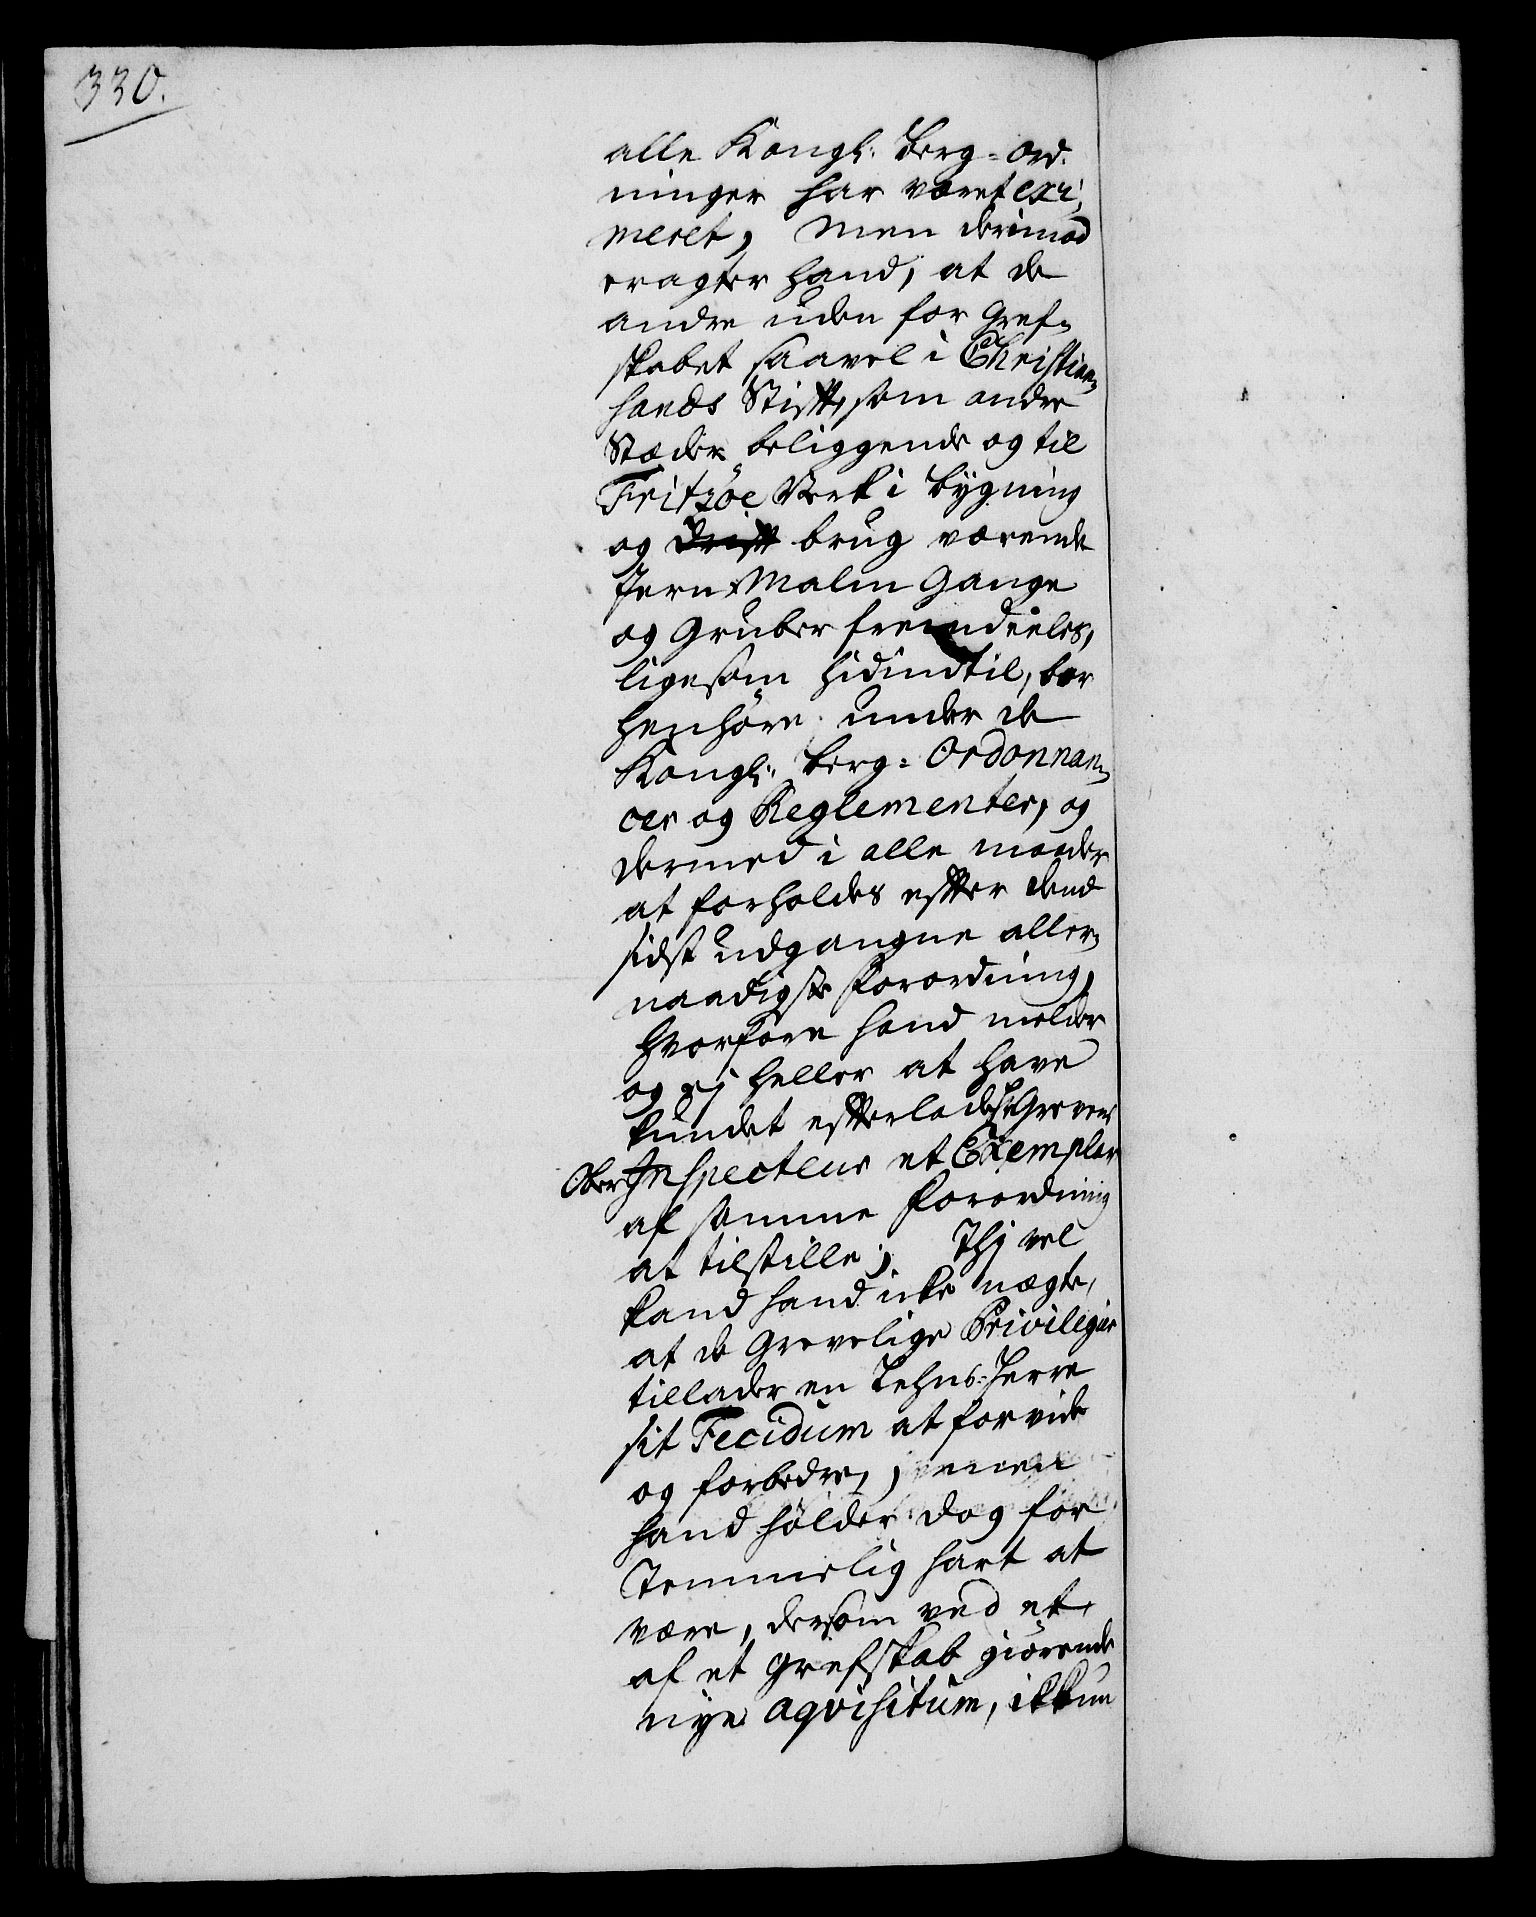 330.
alle Kongl: Berg-Ord-
ninger har været exi-
meret, men derimod
eragter hand, at de
andre uden for Gref-
skabet saavel i Christian-
sands Stift, som andre
Stæder beliggende og til
Fritzøe Verk i bygning
og drift brug værende
Jern Malm Gange
og Gruber fremdeeles,
ligesom hidindtil, bør
henhøre under de
Kongl: Berg-Ordonnan-
cer og Reglementer, og
dermed i alle maader
at forholdes efter dend
sidst udgangne aller-
naadigste Forordning,
hvorfore hand melder
og ej heller at have
kundet efterlade Grevens
Ober Inspecteur et Exemplar
af samme Forordning
at tilstille; Thj vel
kand hand icke nægte,
at de Grevelige Privilegier
tillader en Lehns-Herre
sit Fecidum at forvide
og forbedre, men
hand holder dog for
temmelig hart at
være, dersom ved et,
af et Grefskab giørende
nye aqvisitum, ikkun